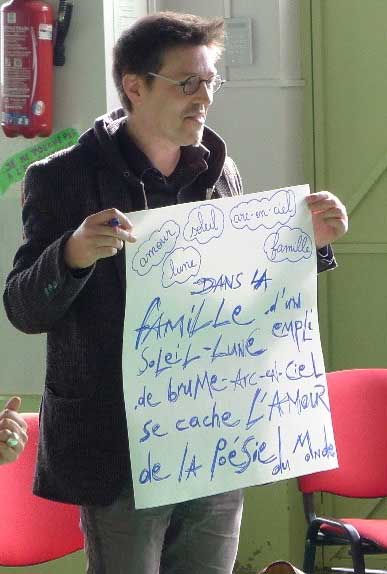 amour
soleil
arc-en-ciel
lune
famille
DANS LA
FAMILLE d'un
SOLEIL-LUNE empli
de brume-Arc-en-Ciel
se cache L'AMOUR
de la Poésie du Monde